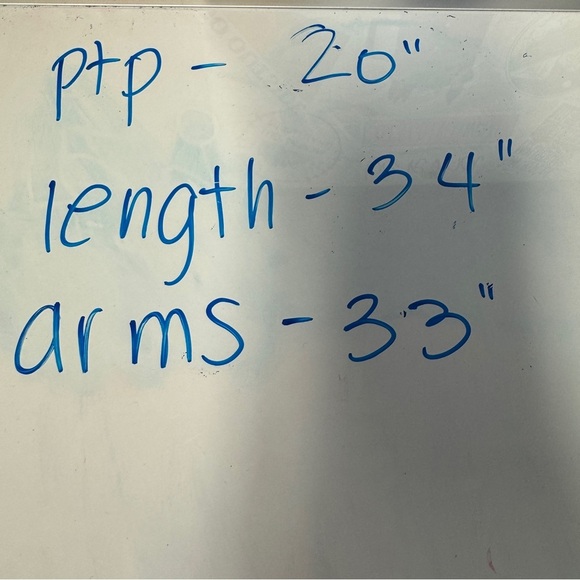 ptp - 20"
length - 34"
arms - 33"